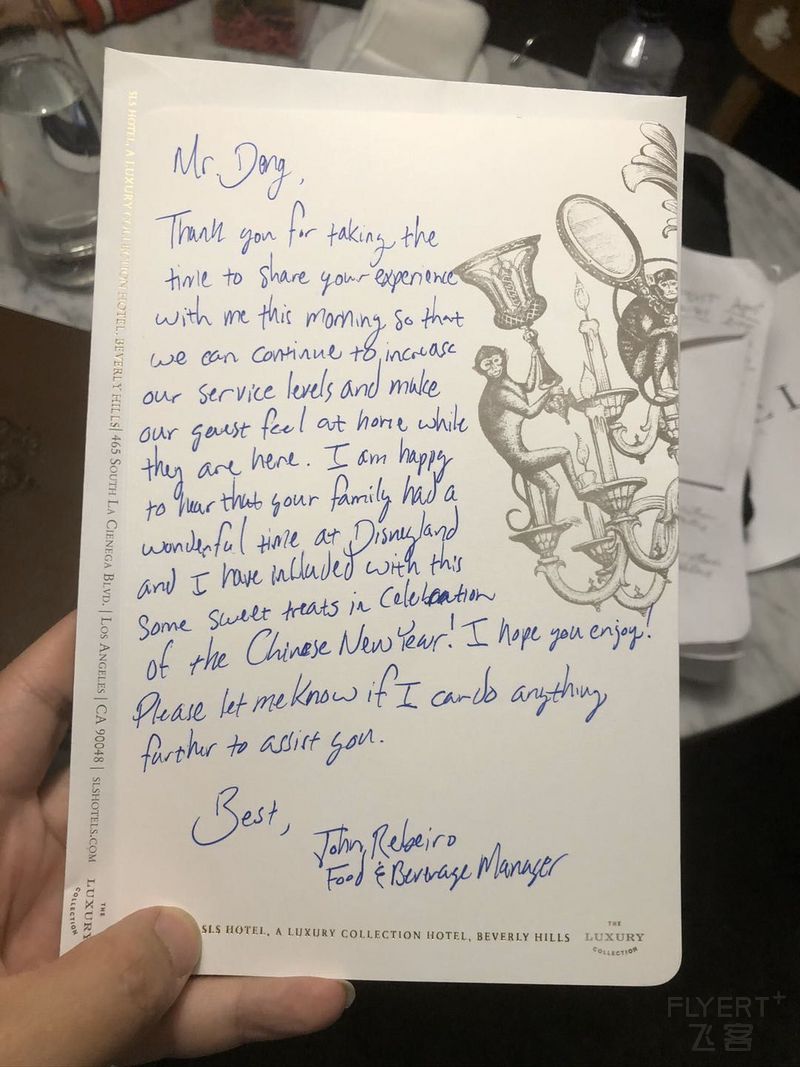 Mr. Dong,
Thank you for taking the
time to share your experience
with me this morning so that
we can continue to increase
our service levels and make
our guest feel at home while
they are here. I am happy
to hear that your family had a
wonderful time at Disneyland
and I have included with this
some sweet treats in Celebration
of the Chinese New Year! I hope you enjoy!
Please let me know if I can do anything
further to assist you.
Best,
John Rebeiro
Food & Berverage Manager
SLS HOTEL, A LUXURY COLLECTION HOTEL, BEVERLY HILLS
THE
LUXURY
COLLECTION
SLS HOTEL, A LUXURY COLLECTION HOTEL, BEVERLY HILLS | 465 SOUTH LA CIENEGA BLVD. | LOS ANGELES | CA 90048 | SLSHOTELS.COM
THE
LUXURY
COLLECTION
FLYERT+
飞客